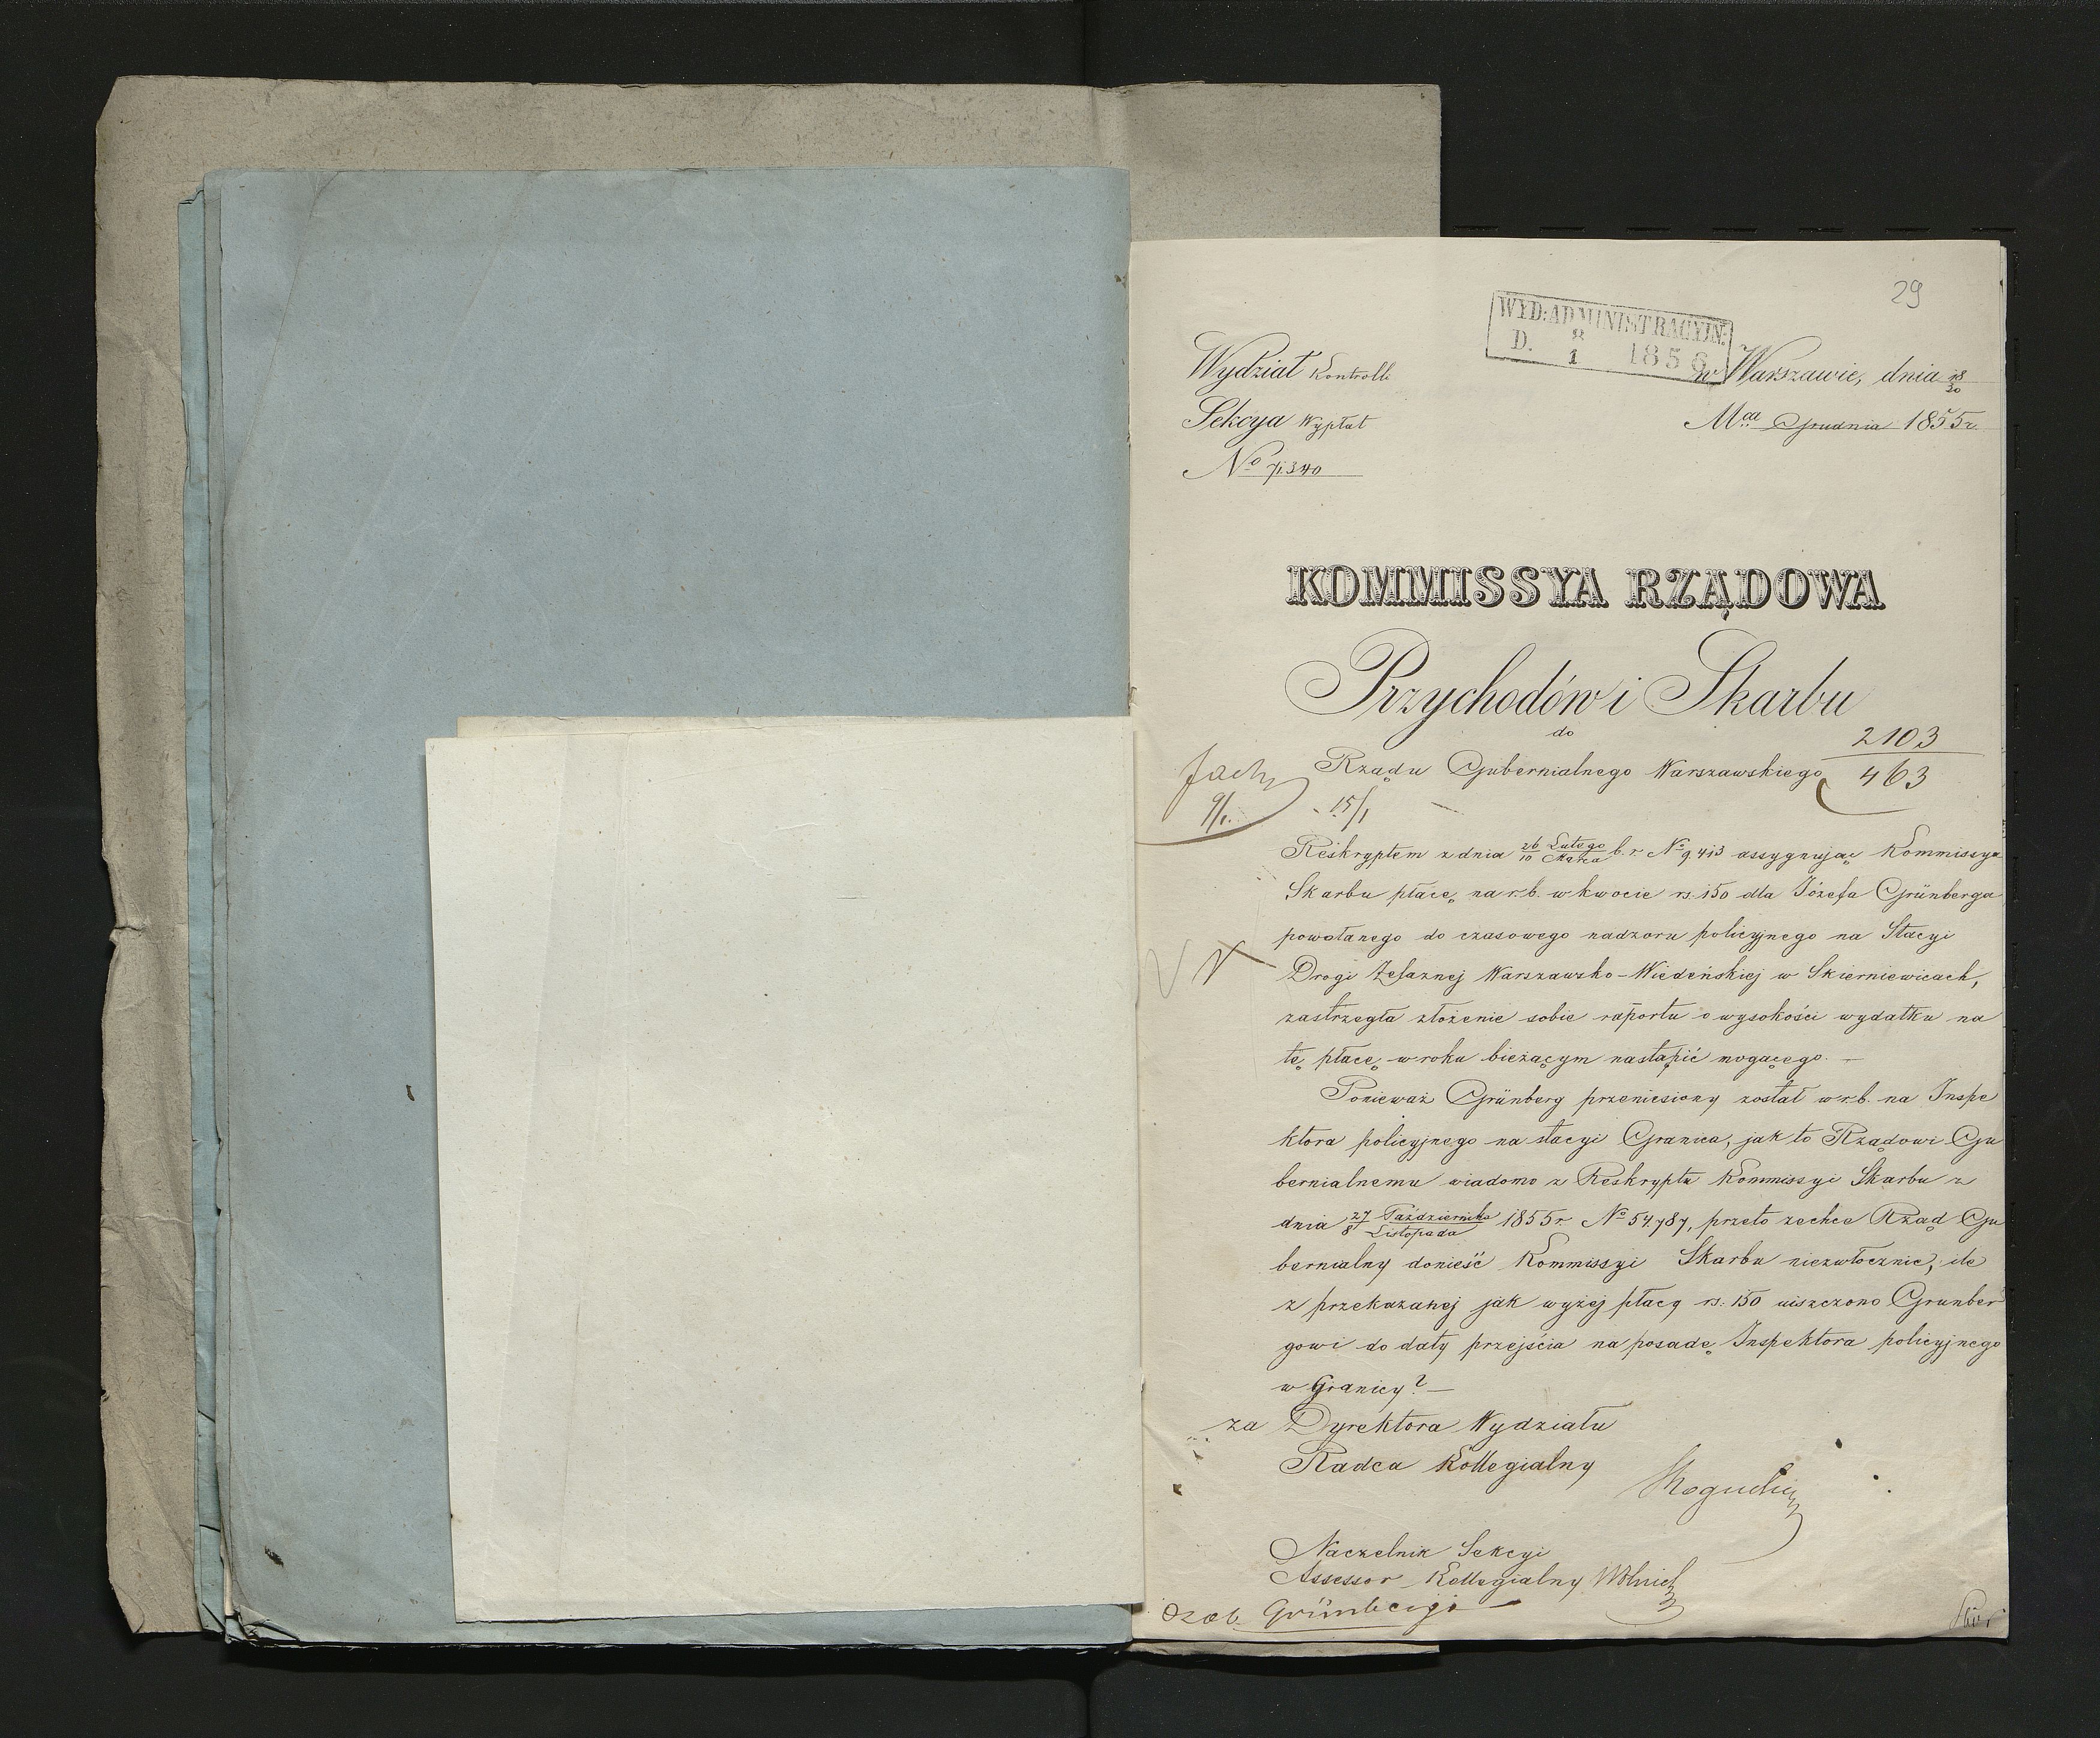 29
WYD: ADMINISTRACYJN:
D. 8/1 1856
Wydział Kontrolli
w Warszawie, dnia 18/30
Sekcya Wypłat
Mca Grudnia 1855 r.
No 71.340
KOMMISSYA RZĄDOWA
Przychodów i Skarbu
do
2103
Rządu Gubernialnego Warszawskiego
463
9/1.
15/1
Reskryptem z dnia 26 Lutego/10 Marca b. r. No 9.413 assygnując Kommissya
Skarbu płacę na r.b. w kwocie rs. 150 dla Józefa Grünberga
powołanego do czasowego nadzoru policyjnego na Stacyi
Drogi Żelaznej Warszawsko-Wiedeńskiej w Skierniewicach,
zastrzegła złożenie sobie raportu o wysokości wydatku na
tę płacę w roku bieżącym nastąpić mogącego. —
Ponieważ Grünberg przeniesiony został w r.b. na Inspe
ktora policyjnego na stacyi Granica, jak to Rządowi Gu
bernialnemu wiadomo z Reskryptu Kommissyi Skarbu z
dnia 27 Października/8 Listopada 1855 r. No 54.787, przeto zechce Rząd Gu
bernialny donieść Kommissyi Skarbu niezwłocznie, ile
z przekazanej jak wyżej płacy rs. 150 uiszczono Grunber
gowi do daty przejścia na posadę Inspektora policyjnego
w Granicy? —
za Dyrektora Wydziału
Radca Kollegialny
Naczelnik Sekcyi
Assessor Kollegialny